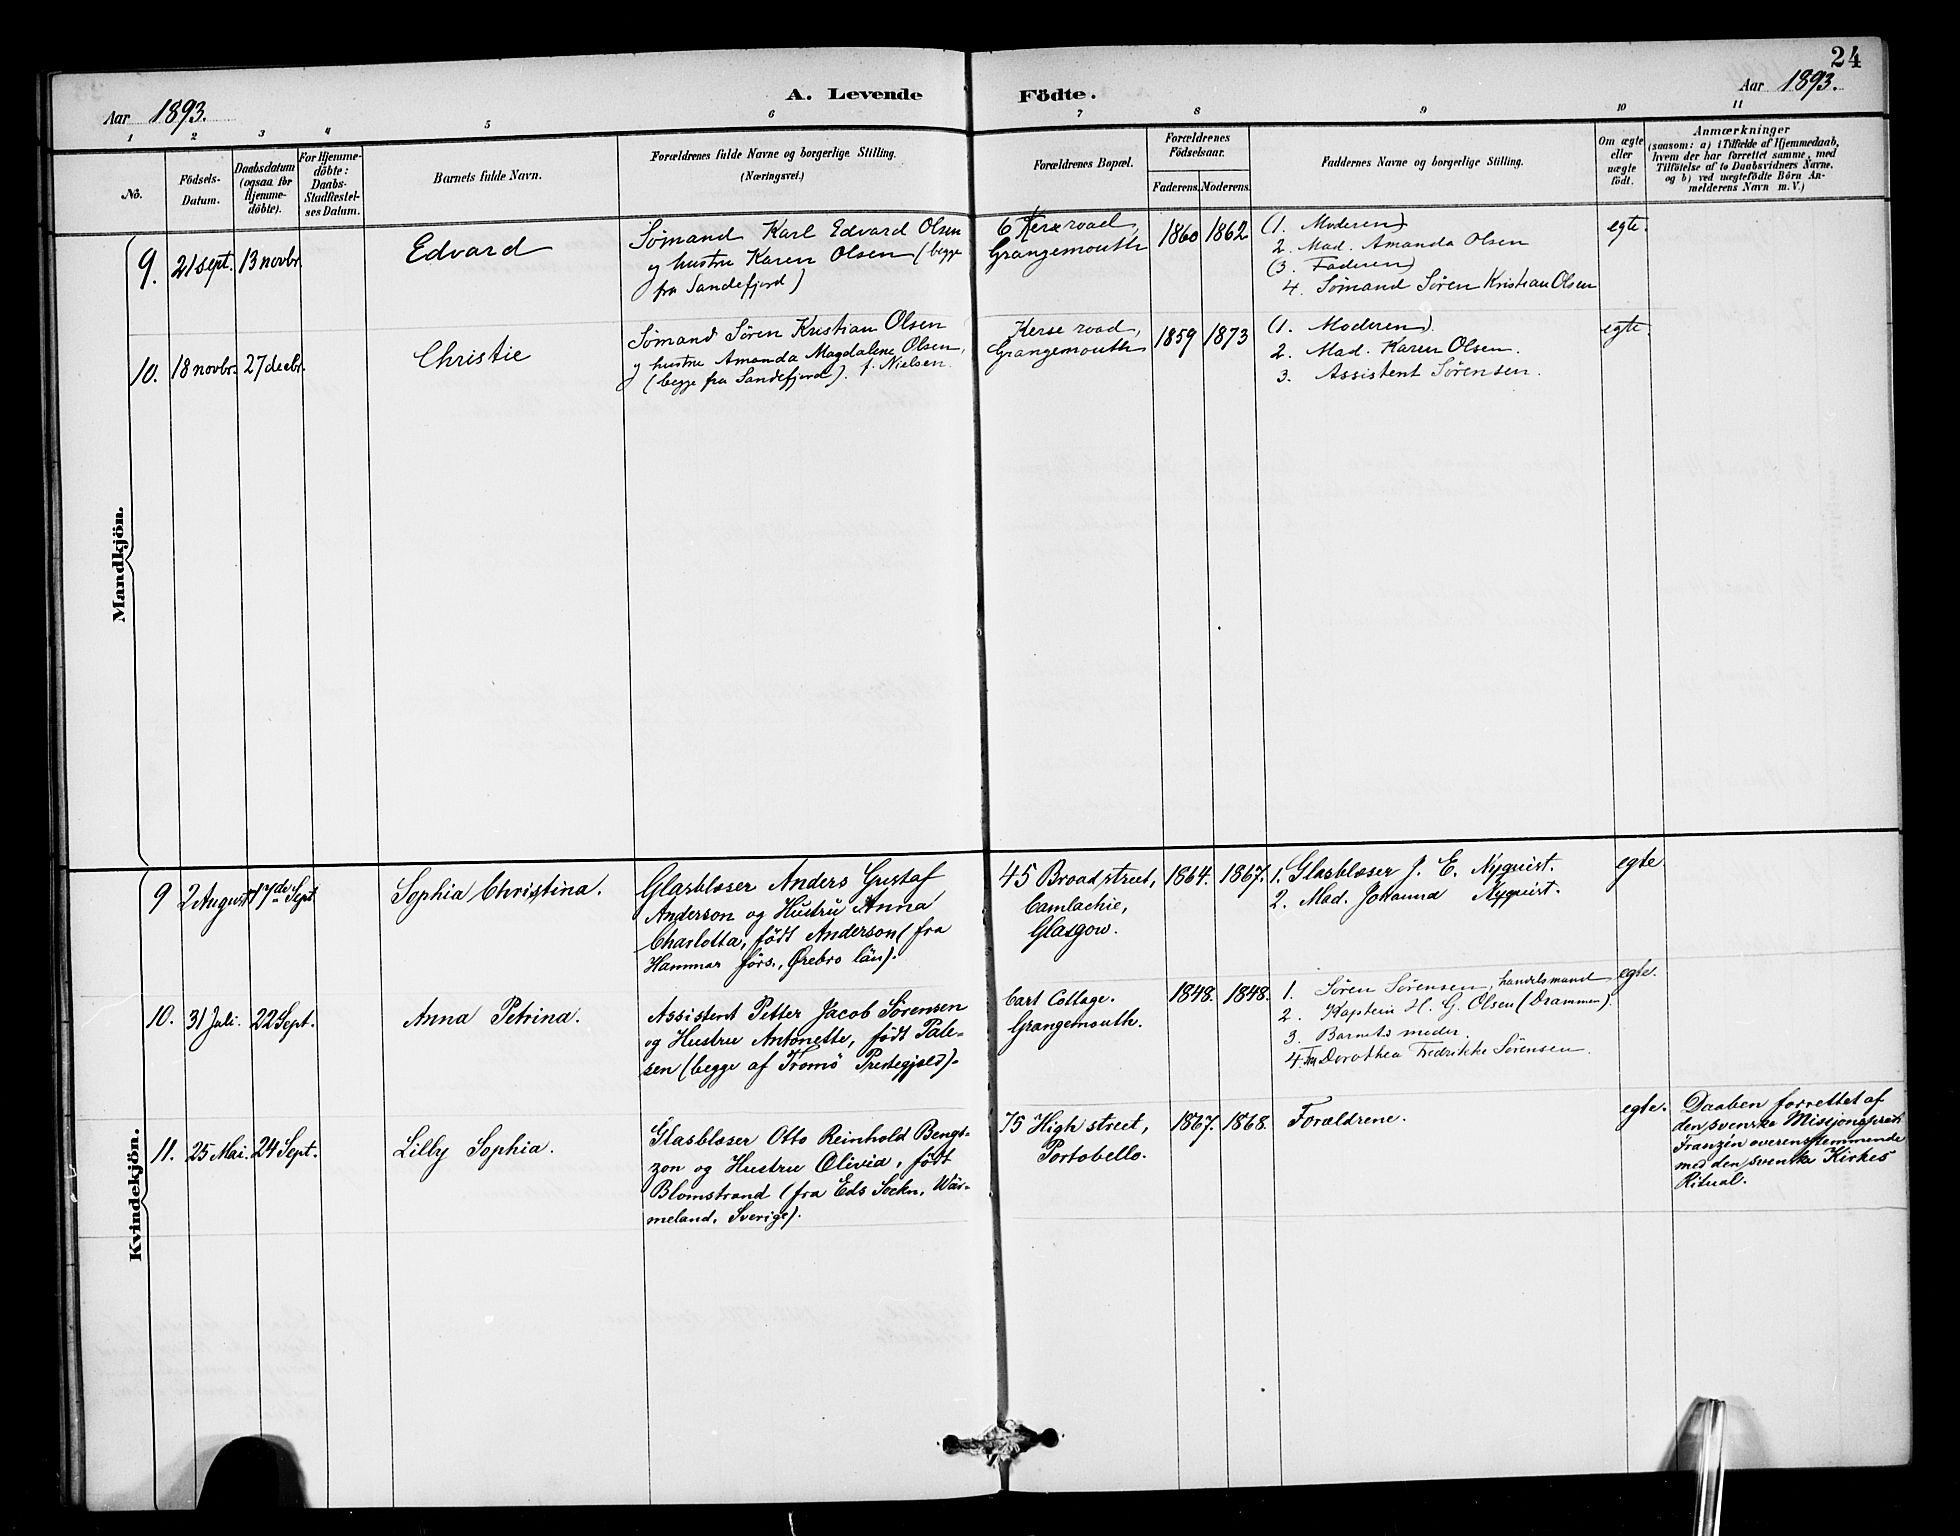 24
Aar 1893.
A. Levende Födte.
Aar 1893.
1 2 3 4 5 6 7 8 9 10 11
No.
Födsels-
Datum.
Daabsdatum
(ogsaa for
Hjemme-
döbte).
For Hjemme-
döbte:
Daabs-
Stadfæstel-
ses Datum.
Barnets fulde Navn.
Forældrenes fulde Navne og borgerlige Stilling.
(Næringsvei.)
Forældrenes Bopæl.
Forældrenes
Födselsaar.
Faderens. Moderens.
Faddernes Navne og borgerlige Stilling.
Om ægte
eller
uægte
födt.
Anmærkninger
(saasom: a) i Tilfælde af Hjemmedaab,
hvem der har forrettet samme, med
Tilföielse af to Daabsvidners Navne.
og b) ved uægtefödte Börn An-
melderens Navn m. V.)
Mandkjön.
9. 21 sept. 13 novbr.
Edvard
Sømand Karl Edvard Olsen
og hustru Karen Olsen (begge
fra Sandefjord)
6 Kerse road,
Grangemouth
1860 1862
(1. Moderen)
2. Mad. Amanda Olsen
(3. Faderen)
4. Sømand Søren Kristian Olsen
egte.
10. 18 novbr. 27 decbr.
Christie
Sømand Søren Kristian Olsen
og hustru Amanda Magdalene Olsen,
(begge fra Sandefjord). f. Nielsen.
Kerse road,
Grangemouth
1859 1873
(1. Moderen)
2. Mad. Karen Olsen.
3. Assistent Sørensen.
egte.
Kvindekjön.
9 2 August 17de Sept.
Sophia Christina.
Glasblæser Anders Gustaf
Anderson og Hustru Anna
Charlotta, født Anderson (fra
Hammar förs., Ørebro län).
45 Broad street,
Camlachie,
Glasgow.
1864. 1867.
1. Glasblæser J. E. Nyquist.
2. Mad. Johanna Nyquist.
egte
10. 31 Juli. 22 Sept.
Anna Petrina.
Assistent Petter Jacob Sørensen
og Hustru Antonette, født Pale-
sen (begge af Tromö Prestegjeld).
Cart Cottage.
Grangemouth.
1848. 1848.
1. Søren Sørensen, handelsmand
2. Kaptein H. G. Olsen (Drammen).
3. Barnets moder.
4. Dorothea Fredrikke Sørensen.
egte.
11. 25 Mai. 24 Sept.
Lilly Sophia.
Glasblæser Otto Reinhold Bengt-
zon og Hustru Olivia, født
Blomstrand (fra Eds Sockn, Wär-
meland, Sverige).
75 High street,
Portobello.
1867. 1868.
Forældrene.
egte.
Daaben forrettet af
den svenske Missjonsprest
Franzén overensstemmende
med den svenske Kirkes
Ritual.